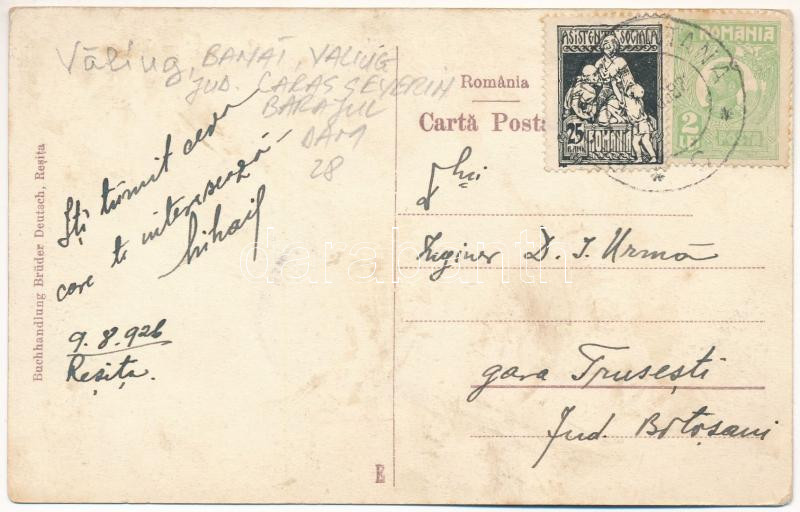 Văliug, BANAT, VALIUG
JUD. CARAS SEVERIN
BARAJUL
DAM
28
Îți trimit ceva
care te interesează
Mihail
9.8.926
Reșița.
Buchhandlung Brüder Deutsch, Reșița
România
Cartă Posta
ASISTENȚA SOCIALA
25
BANI
ROMANIA
ROMANIA
2
LEI
POSTA
Inginer D. I. Urmă
gara Trusești
Jud. Botoșani
E
darabanth